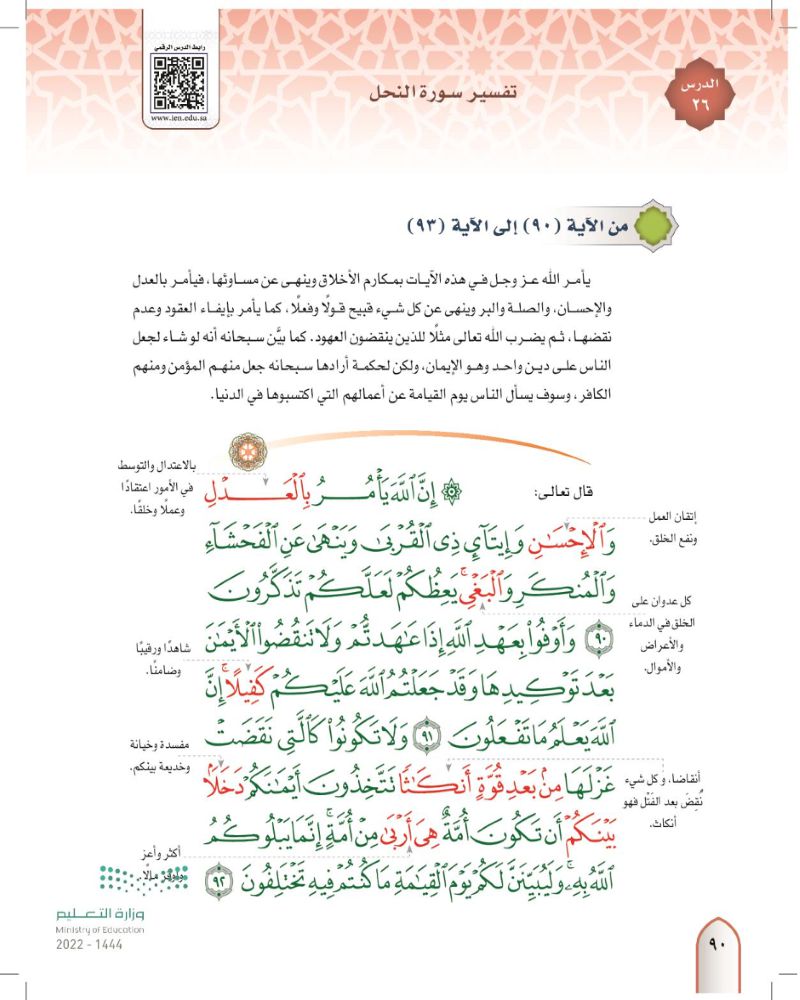 رابط الدرس الرقمي
www.ien.edu.sa
الدرس
٢٦
تفسير سورة النحل
من الآية (٩٠) إلى الآية (٩٣)
يأمر الله عز وجل في هذه الآيات بمكارم الأخلاق وينهى عن مساوئها، فيأمر بالعدل
والإحسان، والصلة والبر وينهى عن كل شيء قبيح قولًا وفعلًا، كما يأمر بإيفاء العقود وعدم
نقضها، ثم يضرب الله تعالى مثلًا للذين ينقضون العهود. كما بيَّن سبحانه أنه لو شاء لجعل
الناس على دين واحد وهو الإيمان، ولكن لحكمة أرادها سبحانه جعل منهم المؤمن ومنهم
الكافر، وسوف يسأل الناس يوم القيامة عن أعمالهم التي اكتسبوها في الدنيا.
قال تعالى:
۞ إِنَّ ٱللَّهَ يَأۡمُرُ بِٱلۡعَدۡلِ
وَٱلۡإِحۡسَٰنِ وَإِيتَآيِٕ ذِي ٱلۡقُرۡبَىٰ وَيَنۡهَىٰ عَنِ ٱلۡفَحۡشَآءِ
وَٱلۡمُنكَرِ وَٱلۡبَغۡيِۚ يَعِظُكُمۡ لَعَلَّكُمۡ تَذَكَّرُونَ
٩٠ وَأَوۡفُواْ بِعَهۡدِ ٱللَّهِ إِذَا عَٰهَدتُّمۡ وَلَا تَنقُضُواْ ٱلۡأَيۡمَٰنَ
بَعۡدَ تَوۡكِيدِهَا وَقَدۡ جَعَلۡتُمُ ٱللَّهَ عَلَيۡكُمۡ كَفِيلًاۚ إِنَّ
ٱللَّهَ يَعۡلَمُ مَا تَفۡعَلُونَ ٩١ وَلَا تَكُونُواْ كَٱلَّتِي نَقَضَتۡ
غَزۡلَهَا مِنۢ بَعۡدِ قُوَّةٍ أَنكَٰثٗا تَتَّخِذُونَ أَيۡمَٰنَكُمۡ دَخَلَۢا
بَيۡنَكُمۡ أَن تَكُونَ أُمَّةٌ هِيَ أَرۡبَىٰ مِنۡ أُمَّةٍۚ إِنَّمَا يَبۡلُوكُمُ
ٱللَّهُ بِهِۦۚ وَلَيُبَيِّنَنَّ لَكُمۡ يَوۡمَ ٱلۡقِيَٰمَةِ مَا كُنتُمۡ فِيهِ تَخۡتَلِفُونَ ٩٢
بالاعتدال والتوسط
في الأمور اعتقادًا
وعملًا وخلقًا.
إتقان العمل
ونفع الخلق.
كل عدوان على
الخلق في الدماء
والأعراض
والأموال.
شاهدًا ورقيبًا
وضامنًا.
مفسدة وخيانة
وخديعة بينكم.
أنقاضا، وكل شيء
نُقِضَ بعد الفَتْل فهو
أنكاث.
أكثر وأعز
وأوفر مالًا.
وزارة التعليم
Ministry of Education
2022 - 1444
٩٠